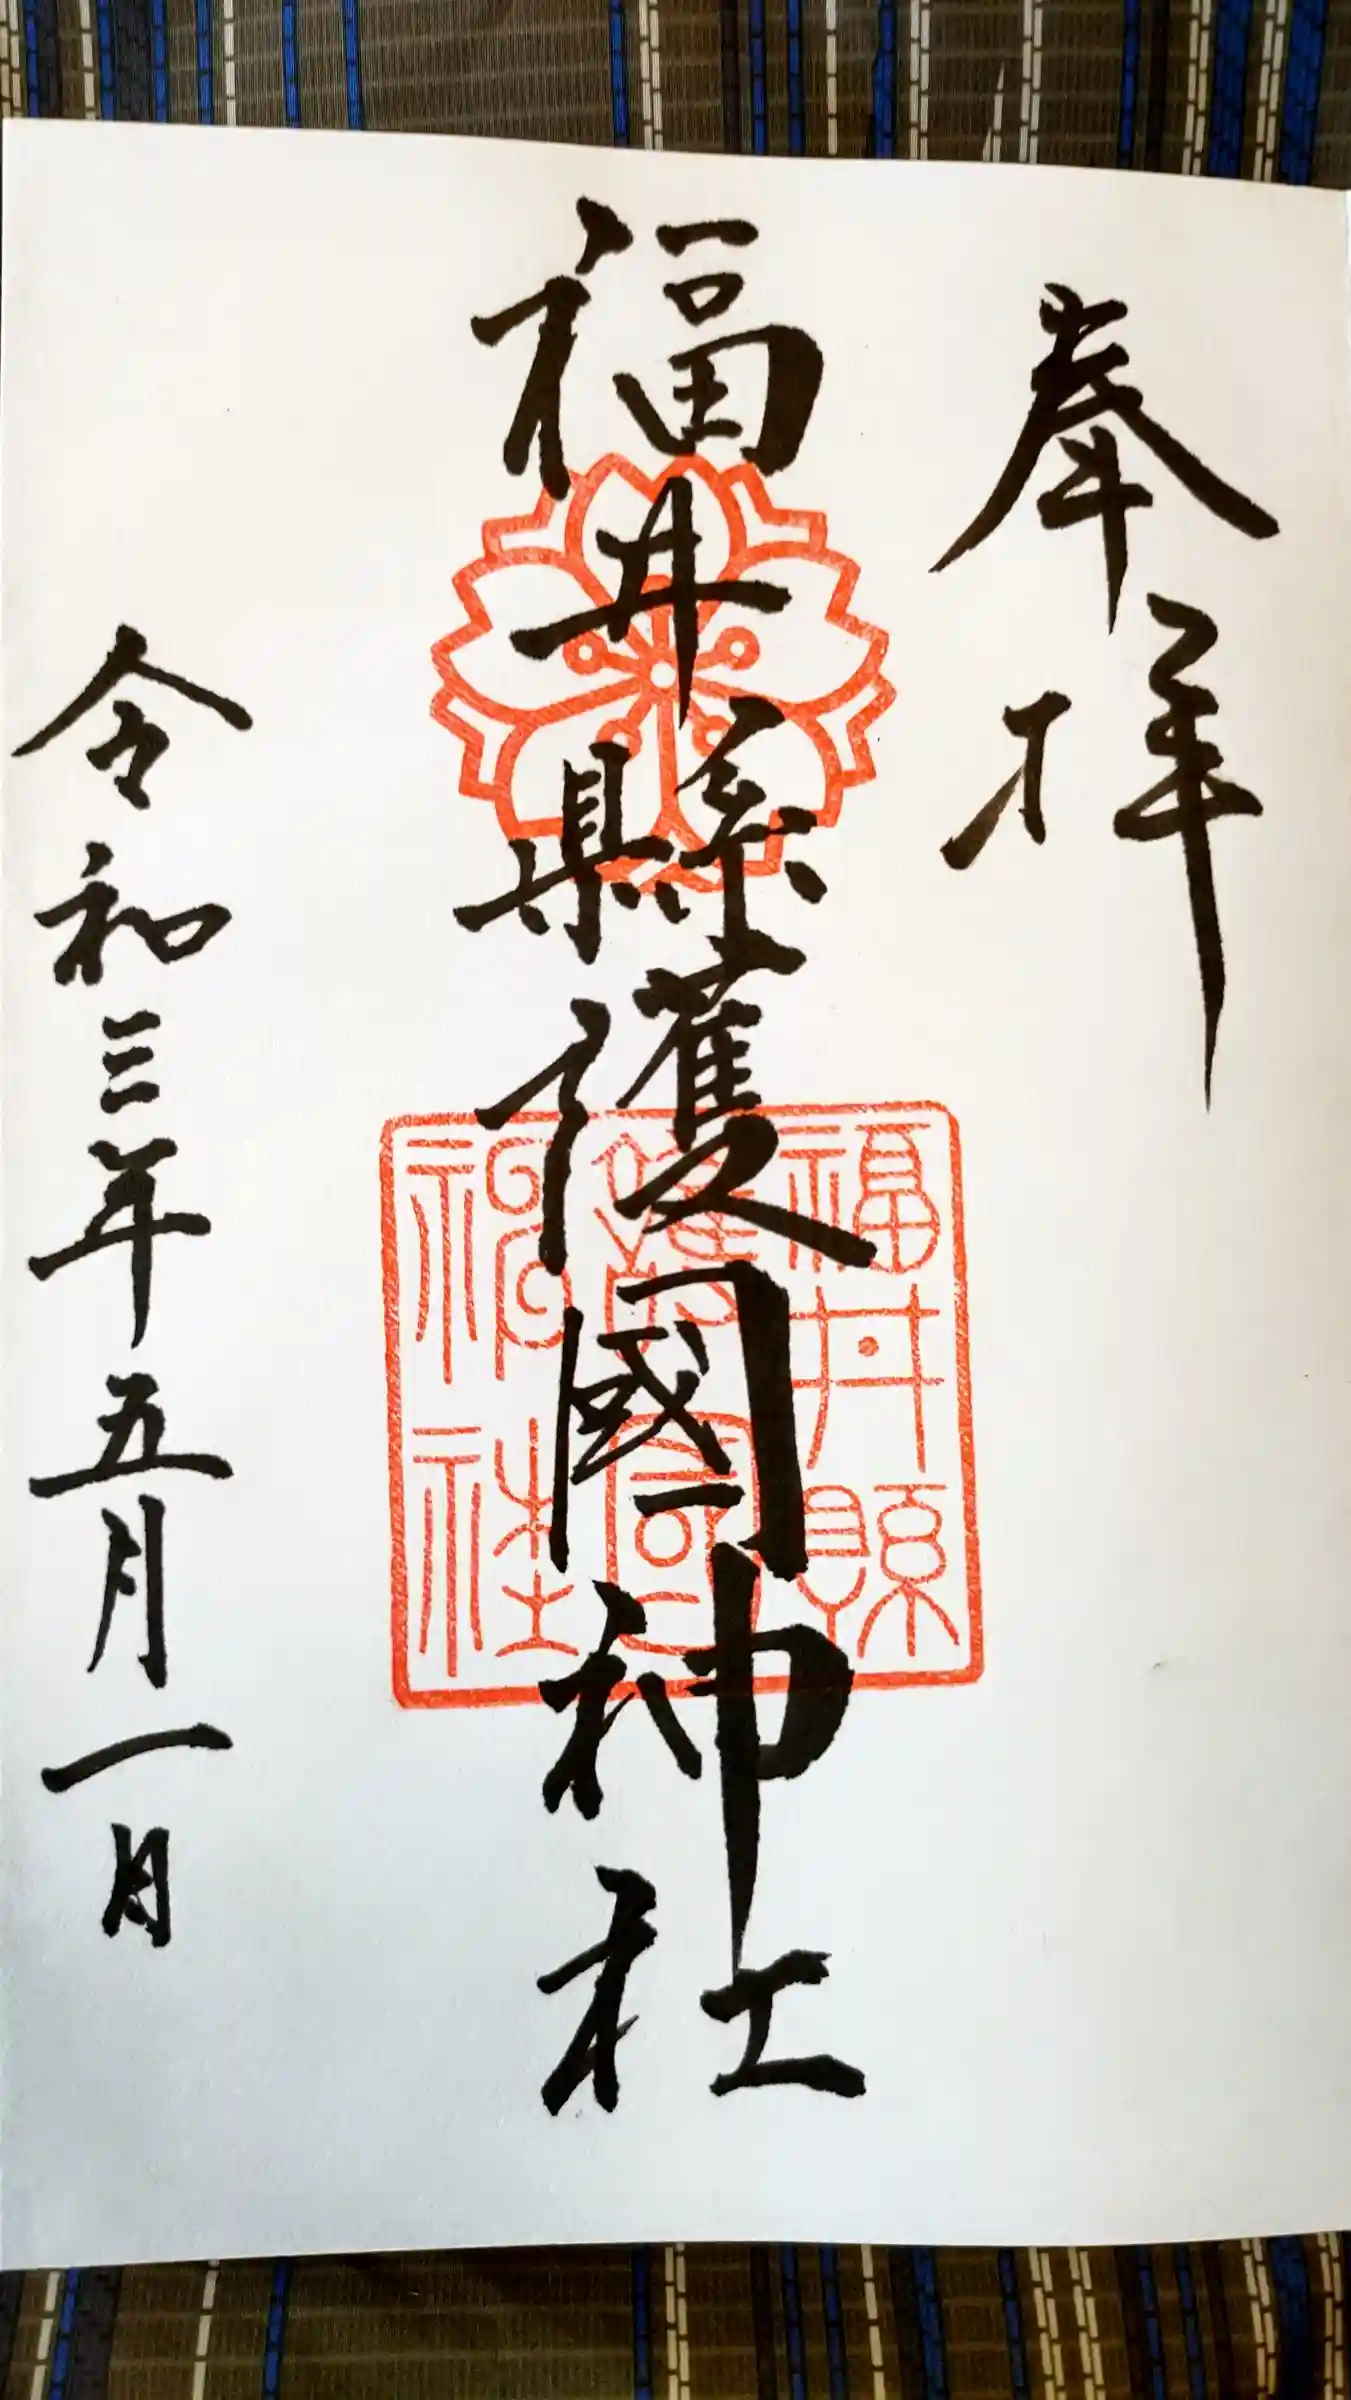 奉拝
福井縣護國神社
福井縣
護國
神社
令和三年五月一日